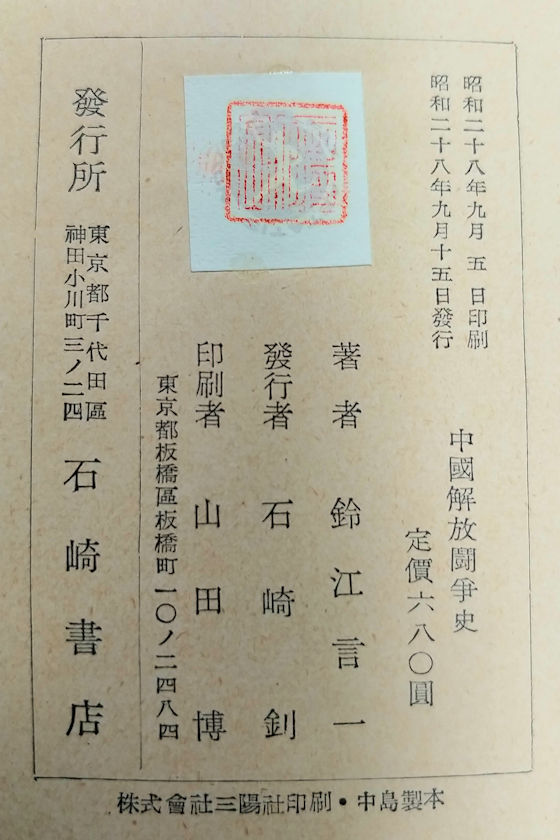 昭和二十八年九月 五 日印刷
昭和二十八年九月十五日發行
中國解放鬪爭史
定價六八〇圓
著者 鈴江言一
發行者 石崎釗
印刷者 山田博
東京都板橋區板橋町一〇ノ二四八四
發行所 東京都千代田區
神田小川町三ノ二四 石崎書店
株式會社三陽社印刷・中島製本